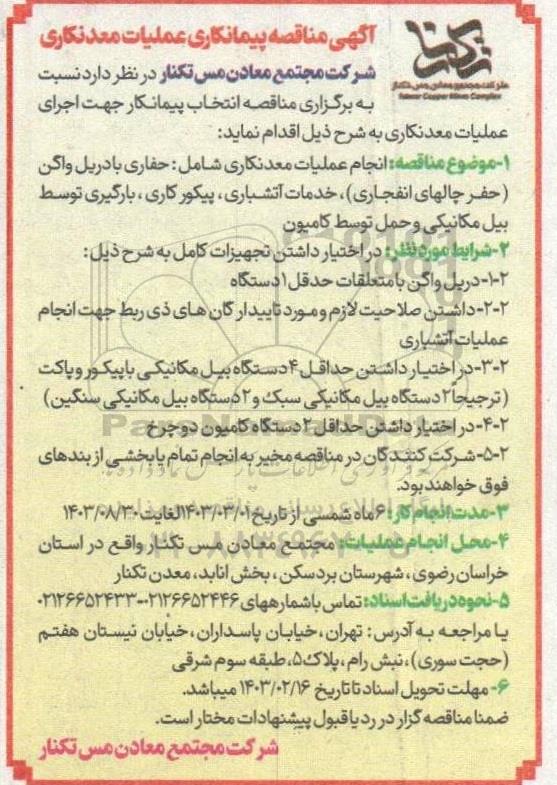 آگهی مناقصه پیمانکاری عملیات معدنکاری
شرکت مجتمع معادن مس تکنار
Taknar Copper Mines Complex
شرکت مجتمع معادن مس تکنار در نظر دارد نسبت
به برگزاری مناقصه انتخاب پیمانکار جهت اجرای
عملیات معدنکاری به شرح ذیل اقدام نماید:
۱-موضوع مناقصه: انجام عملیات معدنکاری شامل: حفاری با دریل واگن
(حفر چالهای انفجاری)، خدمات آتشباری، پیکور کاری، بارگیری توسط
بیل مکانیکی وحمل توسط کامیون
۲-شرایط مورد نظر: در اختیار داشتن تجهیزات کامل به شرح ذیل:
۲-۱-دریل واگن با متعلقات حدقل ۱ دستگاه
۲-۲-داشتن صلاحیت لازم و مورد تاییدار گان های ذی ربط جهت انجام
عملیات آتشباری
۲-۳-در اختیار داشتن حداقل ۴ دستگاه بیل مکانیکی با پیکور و پاکت
(ترجیحاً ۲ دستگاه بیل مکانیکی سبک و ۲ دستگاه بیل مکانیکی سنگین)
۲-۴-در اختیار داشتن حداقل ۲ دستگاه کامیون دو چرخ
۲-۵-شرکت کنندگان در مناقصه مخیر به انجام تمام یا بخشی از بندهای
فوق خواهند بود.
۳-مدت انجام کار: ۶ ماه شمسی از تاریخ ۱۴۰۳/۰۳/۰۱ لغایت ۱۴۰۳/۰۸/۳۰
۴-محل انجام عملیات: مجتمع معادن مس تکنار واقع در استان
خراسان رضوی، شهرستان بردسکن، بخش انابد، معدن تکنار
۵-نحوه دریافت اسناد: تماس با شماره های ۰۲۱۲۶۶۵۲۴۴۶-۰۲۱۲۶۶۵۲۴۳۳
یا مراجعه به آدرس: تهران، خیابان پاسداران، خیابان نیستان هفتم
(حجت سوری)، نبش رام، پلاک ۵، طبقه سوم شرقی
۶- مهلت تحویل اسناد تا تاریخ ۱۴۰۳/۰۲/۱۶ میباشد.
ضمنا مناقصه گزار در رد یا قبول پیشنهادات مختار است.
شرکت مجتمع معادن مس تکنار